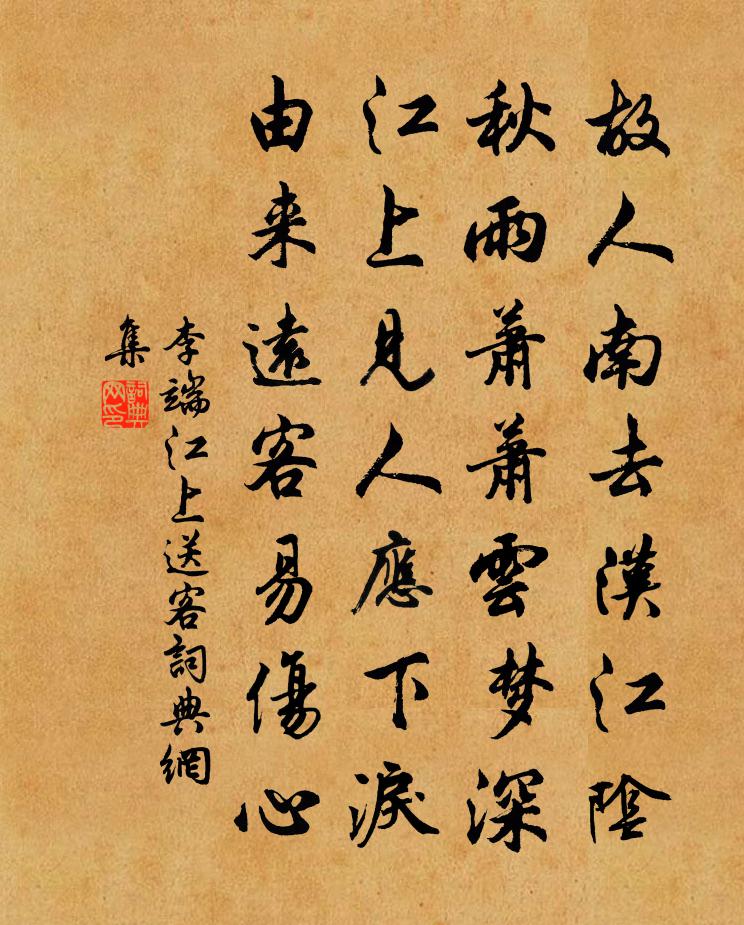 故人南去漢江陰
秋雨蕭蕭雲梦深
江上見人應下淚
由来遠客易傷心
李端江上送客詞典網
集
詞典
网印